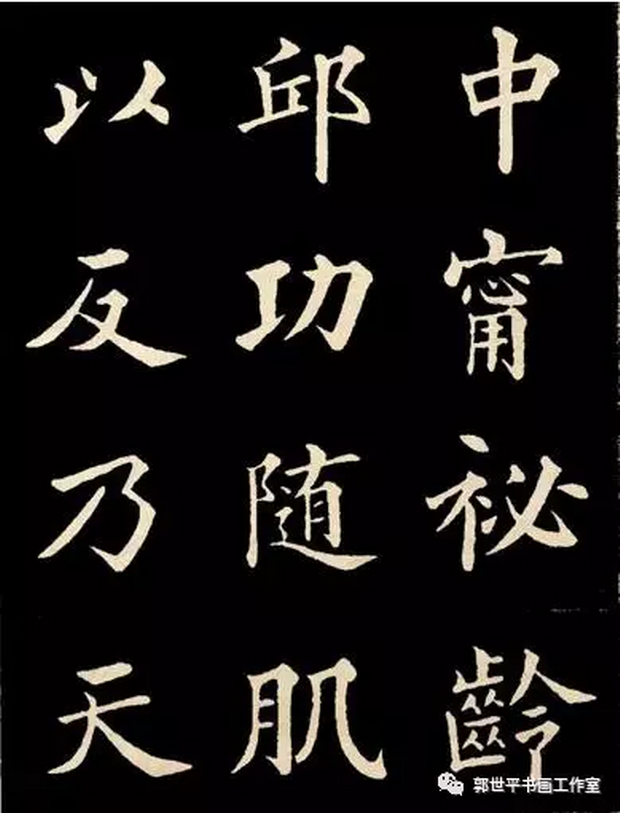 中甯祕齡
邱功随肌
以反乃天
郭世平书画工作室